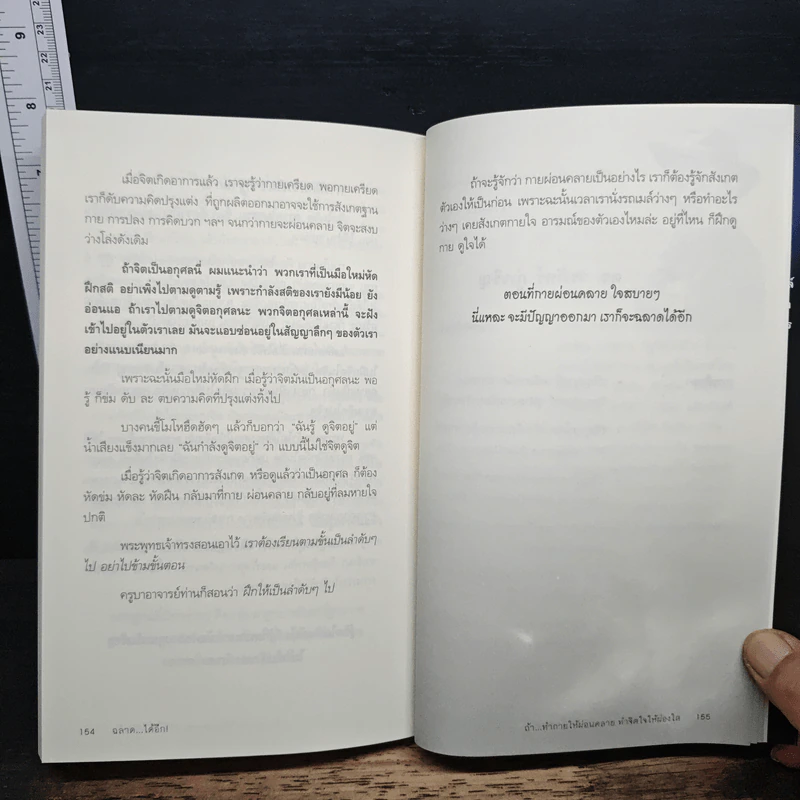 เมื่อจิตเกิดอาการแล้ว เราจะรู้ว่ากายเครียด พอกายเครียด
เราก็ดับความคิดปรุงแต่ง ที่ถูกผลิตออกมาอาจจะใช้การสังเกตฐาน
กาย การปลง การคิดบวก ฯลฯ จนกว่ากายจะผ่อนคลาย จิตจะสงบ
ว่างโล่งดังเดิม
ถ้าจิตเป็นอกุศลนี่ ผมแนะนำว่า พวกเราที่เป็นมือใหม่หัด
ฝึกสติ อย่าเพิ่งไปตามดูตามรู้ เพราะกำลังสติของเรายังมีน้อย ยัง
อ่อนแอ ถ้าเราไปตามดูจิตอกุศลนะ พวกจิตอกุศลเหล่านี้ จะฝัง
เข้าไปอยู่ในตัวเราเลย มันจะแอบซ่อนอยู่ในสัญญาลึกๆ ของตัวเรา
อย่างแนบเนียนมาก
เพราะฉะนั้นมือใหม่หัดฝึก เมื่อรู้ว่าจิตมันเป็นอกุศลนะ พอ
รู้ ก็ข่ม ดับ ละ ตบความคิดที่ปรุงแต่งทิ้งไป
บางคนขี้โมโหฮึดฮัดๆ แล้วก็บอกว่า "ฉันรู้ ดูจิตอยู่" แต่
น้ำเสียงแข็งมากเลย "ฉันกำลังดูจิตอยู่" ว่า แบบนี้ไม่ใช่จิตดูจิต
เมื่อรู้ว่าจิตเกิดอาการสังเกต หรือดูแล้วว่าเป็นอกุศล ก็ต้อง
หัดข่ม หัดละ หัดฝืน กลับมาที่กาย ผ่อนคลาย กลับอยู่ที่ลมหายใจ
ปกติ
พระพุทธเจ้าทรงสอนเอาไว้ เราต้องเรียนตามขั้นเป็นลำดับๆ
ไป อย่าไปข้ามขั้นตอน
ครูบาอาจารย์ท่านก็สอนว่า ฝึกให้เป็นลำดับๆ ไป
154 ฉลาด...ได้อีก!
ถ้าจะรู้จักว่า กายผ่อนคลายเป็นอย่างไร เราก็ต้องรู้จักสังเกต
ตัวเองให้เป็นก่อน เพราะฉะนั้นเวลาเรานั่งรถเมล์ว่างๆ หรือทำอะไร
ว่างๆ เคยสังเกตกายใจ อารมณ์ของตัวเองไหมล่ะ อยู่ที่ไหน ก็ฝึกดู
กาย ดูใจได้
ตอนที่กายผ่อนคลาย ใจสบายๆ
นี่แหละ จะมีปัญญาออกมา เราก็จะฉลาดได้อีก
ถ้า...ทำกายให้ผ่อนคลาย ทำจิตใจให้ผ่องใส 155
9
8
23
22
21